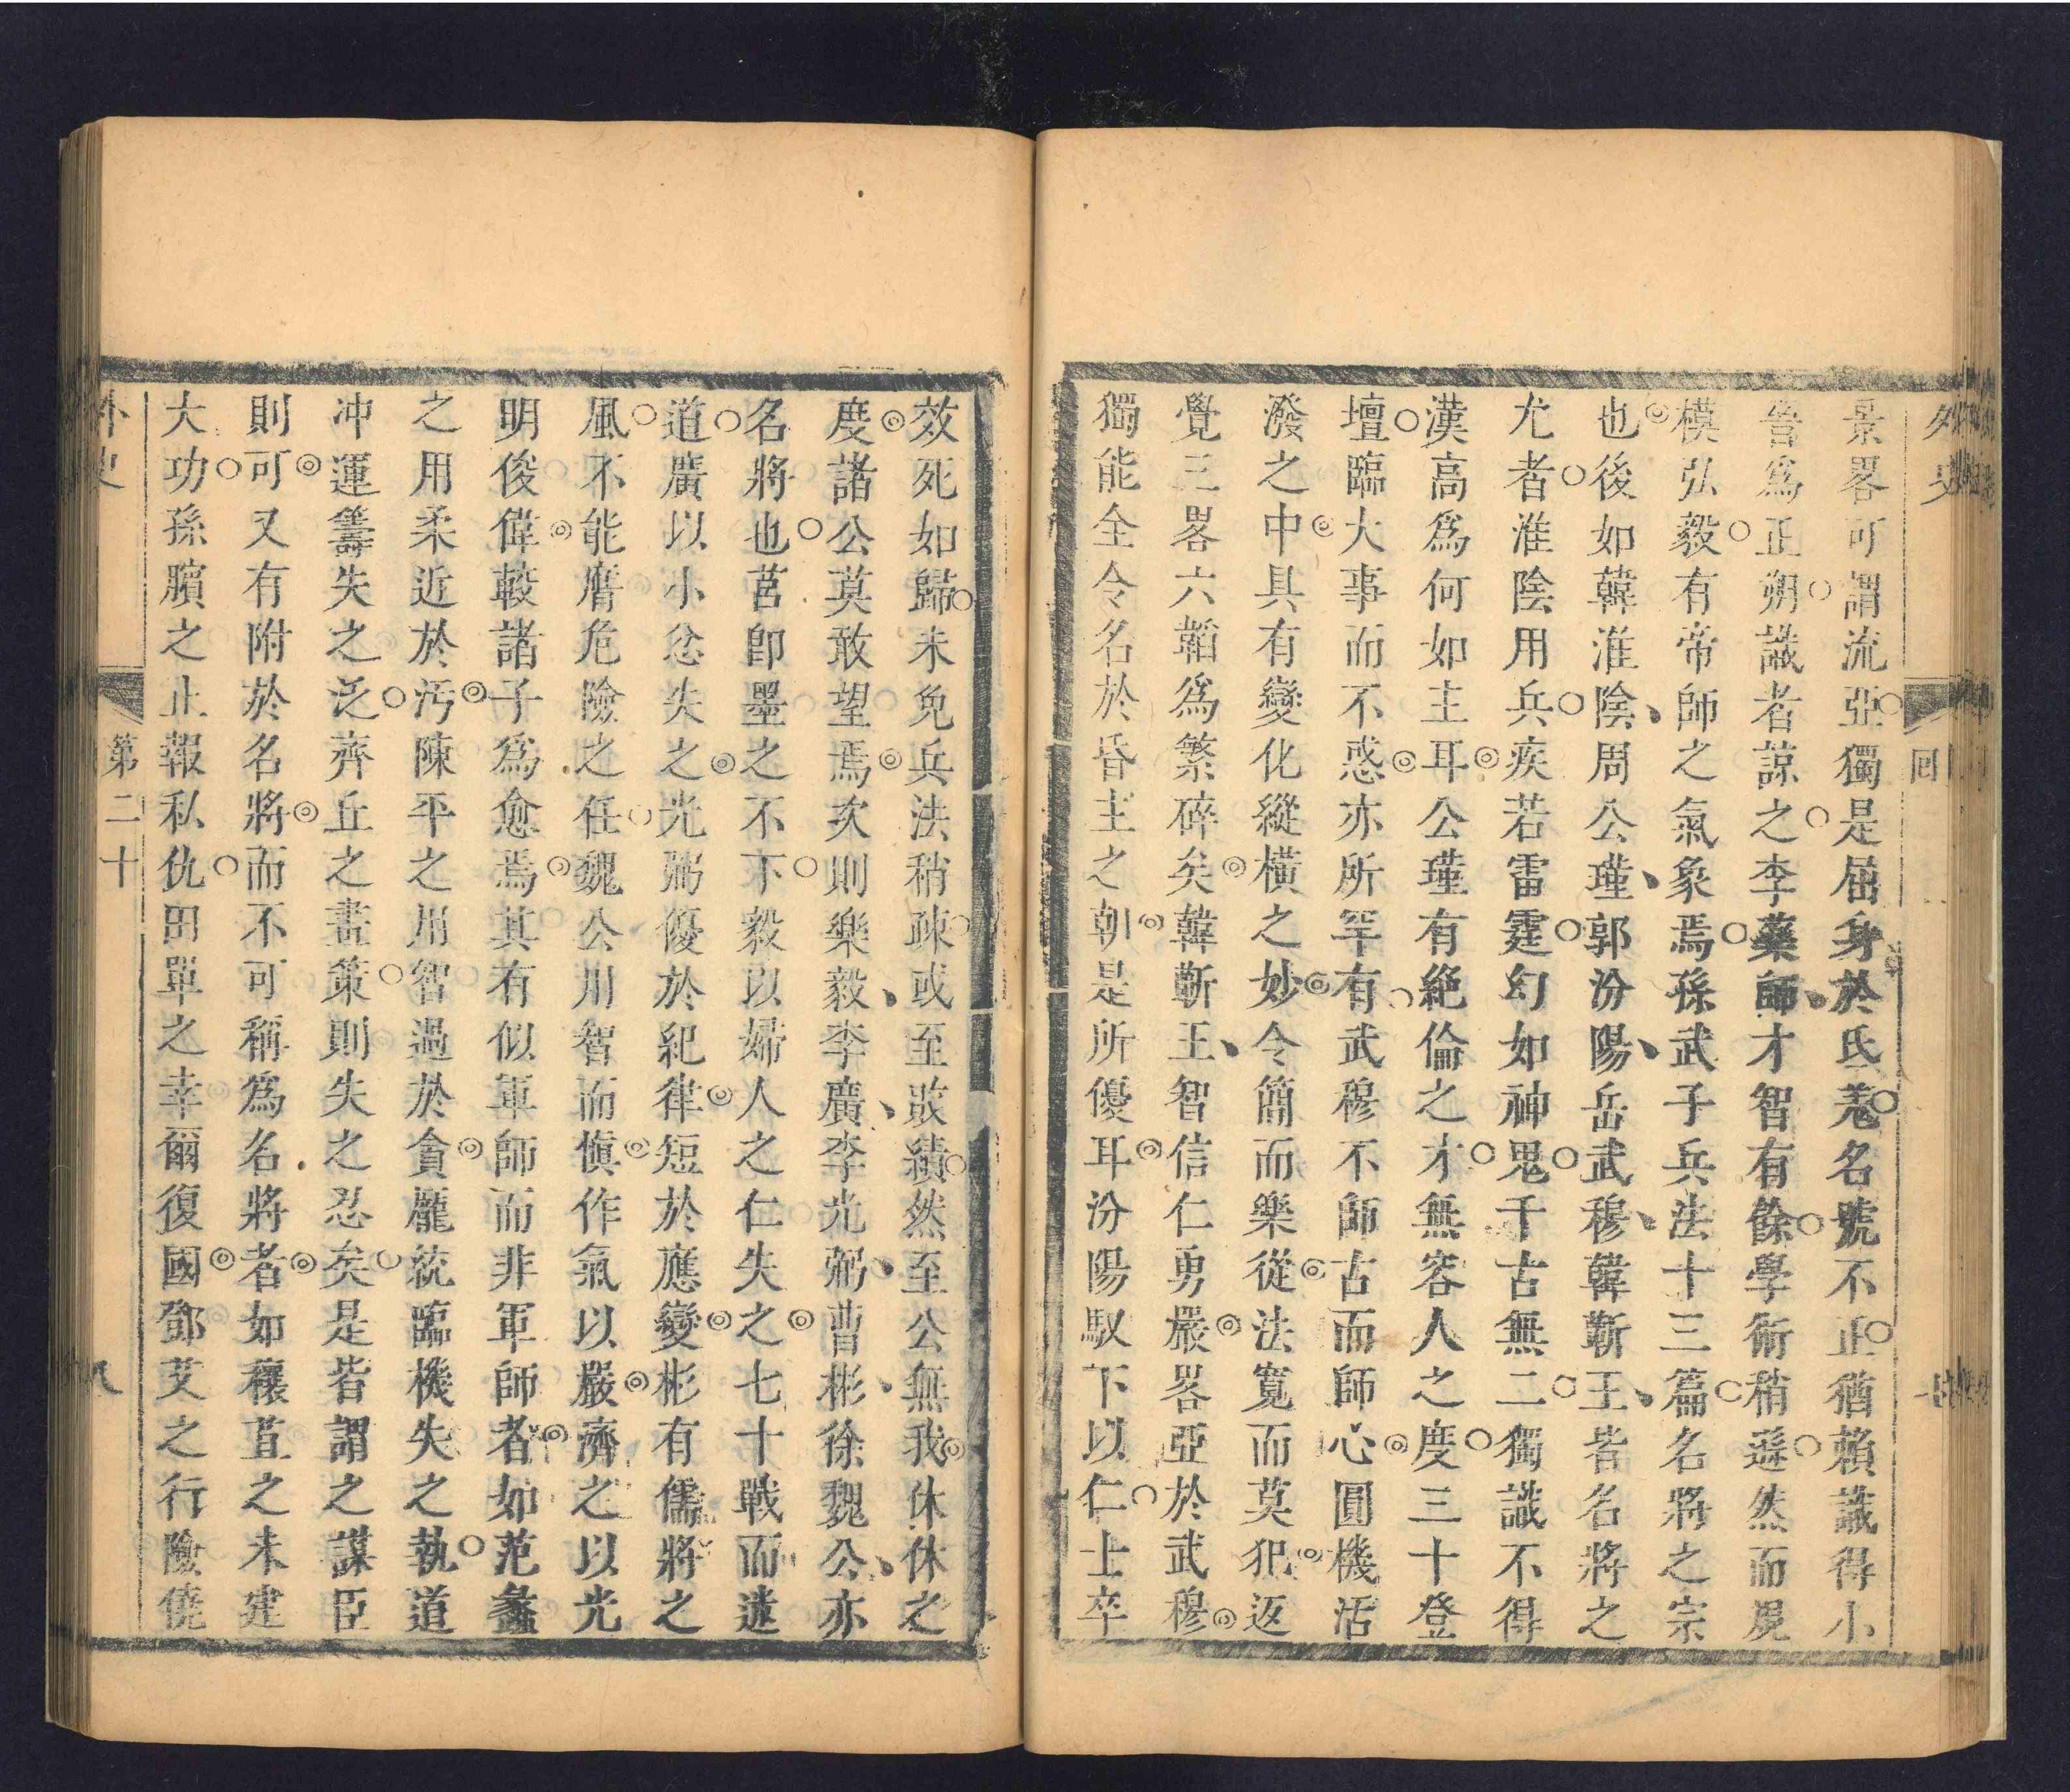 外史
回
七
景畧可謂流亞獨是屈身於氐羗名號不正猶賴識得小
晉爲正朔識者諒之李藥師才智有餘學術稍遜然而規
模弘毅有帝師之氣象焉孫武子兵法十三篇名將之宗
也後如韓淮陰周公瑾郭汾陽岳武穆韓蘄王皆名將之
尤者淮陰用兵疾若雷霆幻如神鬼千古無二獨識不得
漢高爲何如主耳公瑾有絶倫之才無容人之度三十登
壇臨大事而不惑亦所罕有武穆不師古而師心圓機活
潑之中具有變化縱橫之妙令簡而樂從法寬而莫犯返
覺三畧六韜爲繁碎矣韓蘄王智信仁勇嚴畧亞於武穆
獨能全令名於昏主之朝是所優耳汾陽馭下以仁士卒
效死如歸未免兵法稍疎或至敗績然至公無我休休之
度諸公莫敢望焉次則樂毅李廣李光弼曹彬徐魏公亦
名將也莒卽墨之不下毅以婦人之仁失之七十戰而遂
道廣以小忿失之光弼優於紀律短於應變彬有儒將之
風不能膺危險之任魏公用智而愼作氣以嚴濟之以光
明俊偉較諸子爲愈焉其有似軍師而非軍師者如范蠡
之用柔近於汚陳平之用智過於貪龐統臨機失之執道
冲運籌失之泛齊丘之畫策則失之忍矣是皆謂之謀臣
則可又有附於名將而不可稱爲名將者如穰苴之未建
大功孫臏之止報私仇田單之幸爾復國鄧艾之行險僥
外史
第二十
八